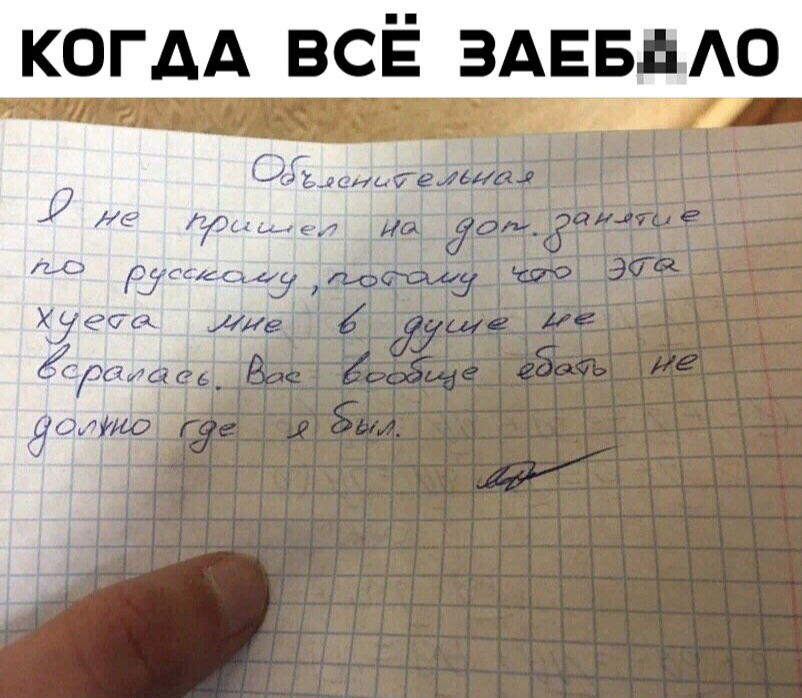 КОГДА ВСЁ ЗАЕБАЛО
Объяснительная
Я не пришел на доп. занятие
по русскому, потому что эта
хуета мне в душе не
всралась. Вас вообще ебать не
должно где я был.